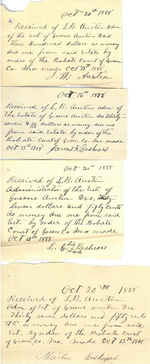 Oct 20th 1888
Received of L.B. Austin Adm
of the Est of Greene Austin Dec
Three Hundred dollars as money
due me from said estate by
order of the Probate Court of
Green Co Mo made Oct 15th 1888
J. M. Austin
Oct 16th 1888
Received of L.B. Austin Adm of
The Estate of Greene Austin Dec thirty
seven dollars as money due me
from said estate by order of the
Probate Court of Green Co. Mo made
Oct 15th 1888
Oct 20th 1888
Received of L.B. Austin
Administrator of the Est. of
Greene Austin Dec, Thirty
Seven dollars and fifty cents
As money due me from said
Est. by order of the Probate
Court of Green Co. Mo made
Oct 15th 1888
Oct 20th 1888
Received of L.B. Austin
Adm. of Est of Greene Austin Dec
Thirty seven dollars and fifty
cts as money due me from said
Est, by order of the Probate Court
of Green Co, Mo, made Oct 15th 1888